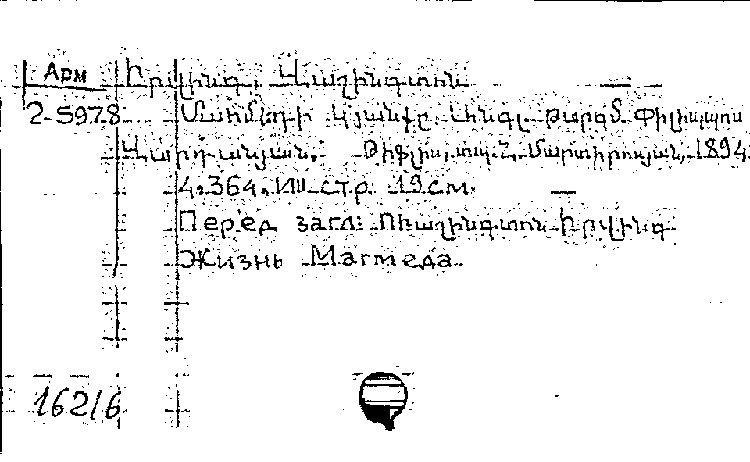 Арм
Իրվինգ, Վաշինգտոն
2-5978
Մահմադի կյանքը. Անգլ. թարգմ. Փիլիպպոս
Վարդանյան. Թիֆլիս, տպ. Մարտիրոսյան, 1894.
4, 364, VIII стр. 19 см.
Перед загл: Ուաշինգտոն Իրվինգ
Жизнь Магмеда.
16216